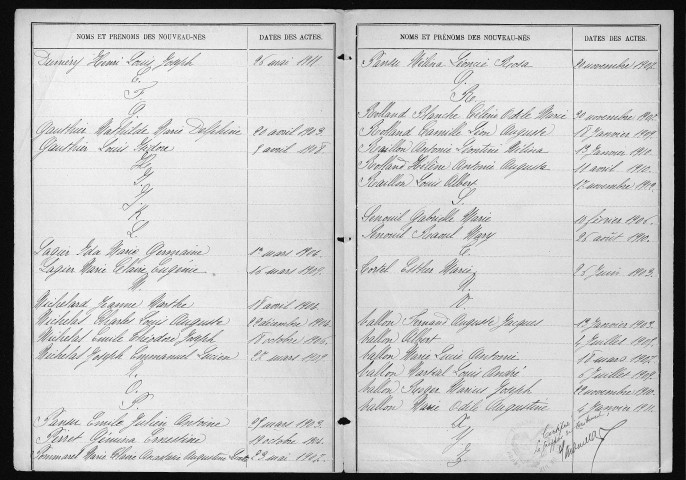 NOMS ET PRÉNOMS DES NOUVEAU-NÉS
DATES DES ACTES.
Dumény Henri Louis Joseph 26 mai 1911
E.
F.
G.
Gauthier Mathilde Marie Delphine 20 avril 1903
Gauthier Louis Isidore 8 avril 1908
H.
I.
J.
K.
L.
Lagier Ida Marie Germaine mars 1904
Lagier Marie Claire Eugénie 16 mars 1909
M.
Michelard Jeanne Marthe 18 avril 1904
Michelas Charles Louis Auguste décembre 1904
Michelas Emile Théodore Joseph 18 octobre 1906
Michelas Joseph Emmanuel Lucien mars 1909
N.
O.
P.
Pansu Emile Julien Antoine mars 1903
Pierret Ernestine octobre 1904
Pommarel Marie Claire Anastasie Augustine 23 mai 1905
NOMS ET PRÉNOMS DES NOUVEAU-NÉS
DATES DES ACTES.
Pansu Léonie Rosa novembre 1906
Q.
R.
Rolland Blanche Célénie Odile Marie 20 novembre
Rolland Camille Léon Auguste 18 Janvier 1909
Raillon Antonie Léontine Janvier 1910
Rolland Hélène Antonie Augusta 11 avril 1910
Raillon Louis Albert novembre 1912
S.
Senouil Gabrielle Marie février 1906
Senouil Raoul Mary 26 août 1910
T.
Esther Marie Juin 1903
U.
V.
Vallon Fernand Auguste Jacques Janvier 1903
Vallon Albert Juillet
Vallon Marie Louise Antonie 18 mars
Vallon Martial Louis André 6 Juillet
Vallon Roger Marius Joseph novembre 1910
Vallon Marie Odile Augustine Janvier 1911
X.
Y.
Z.